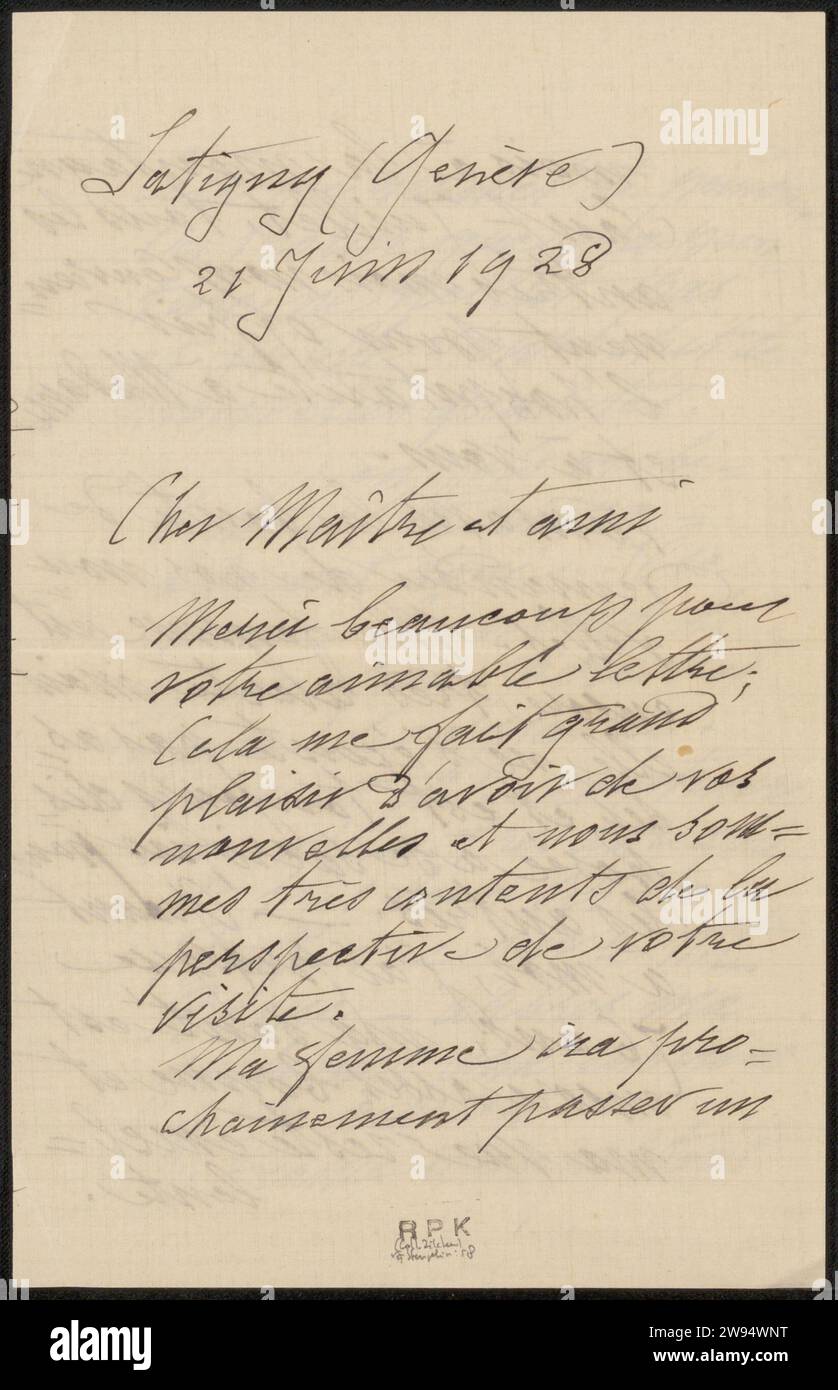 Satigny (Genève)
21 Juin 1928
Cher Maître et ami
Merci beaucoup pour
votre aimable lettre;
Cela me fait grand
plaisir d'avoir de vos
nouvelles et nous som=
mes très contents de la
perspective de votre
visite.
Ma femme ira pro=
chainement passer un
RPK
alamy
Image ID: 2W94WNT
www.alamy.com